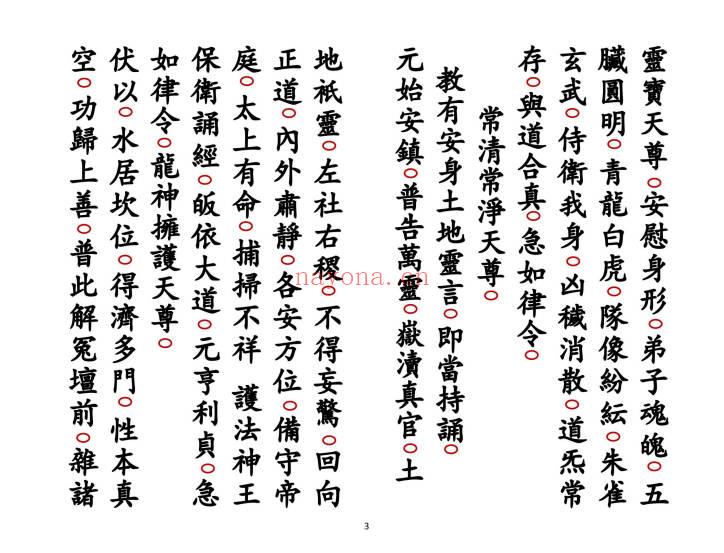 靈寶天尊○安慰身形○弟子魂魄○五
臟圓明○青龍白虎○隊像紛紜○朱雀
玄武○侍衛我身○凶穢消散○道炁常
存○與道合真○急如律令○
常清常淨天尊○
教有安身土地靈言○即當持誦○
元始安鎮○普告萬靈○嶽瀆真官○土
地祇靈○左社右稷○不得妄驚○回向
正道○內外肅靜○各安方位○備守帝
庭○太上有命○捕掃不祥 護法神王
保衛誦經○皈依大道○元亨利貞○急
如律令○龍神擁護天尊○
伏以○水居坎位○得濟多門○性本真
空○功歸上善○普此解冤壇前○雜諸
nayona.cn
3